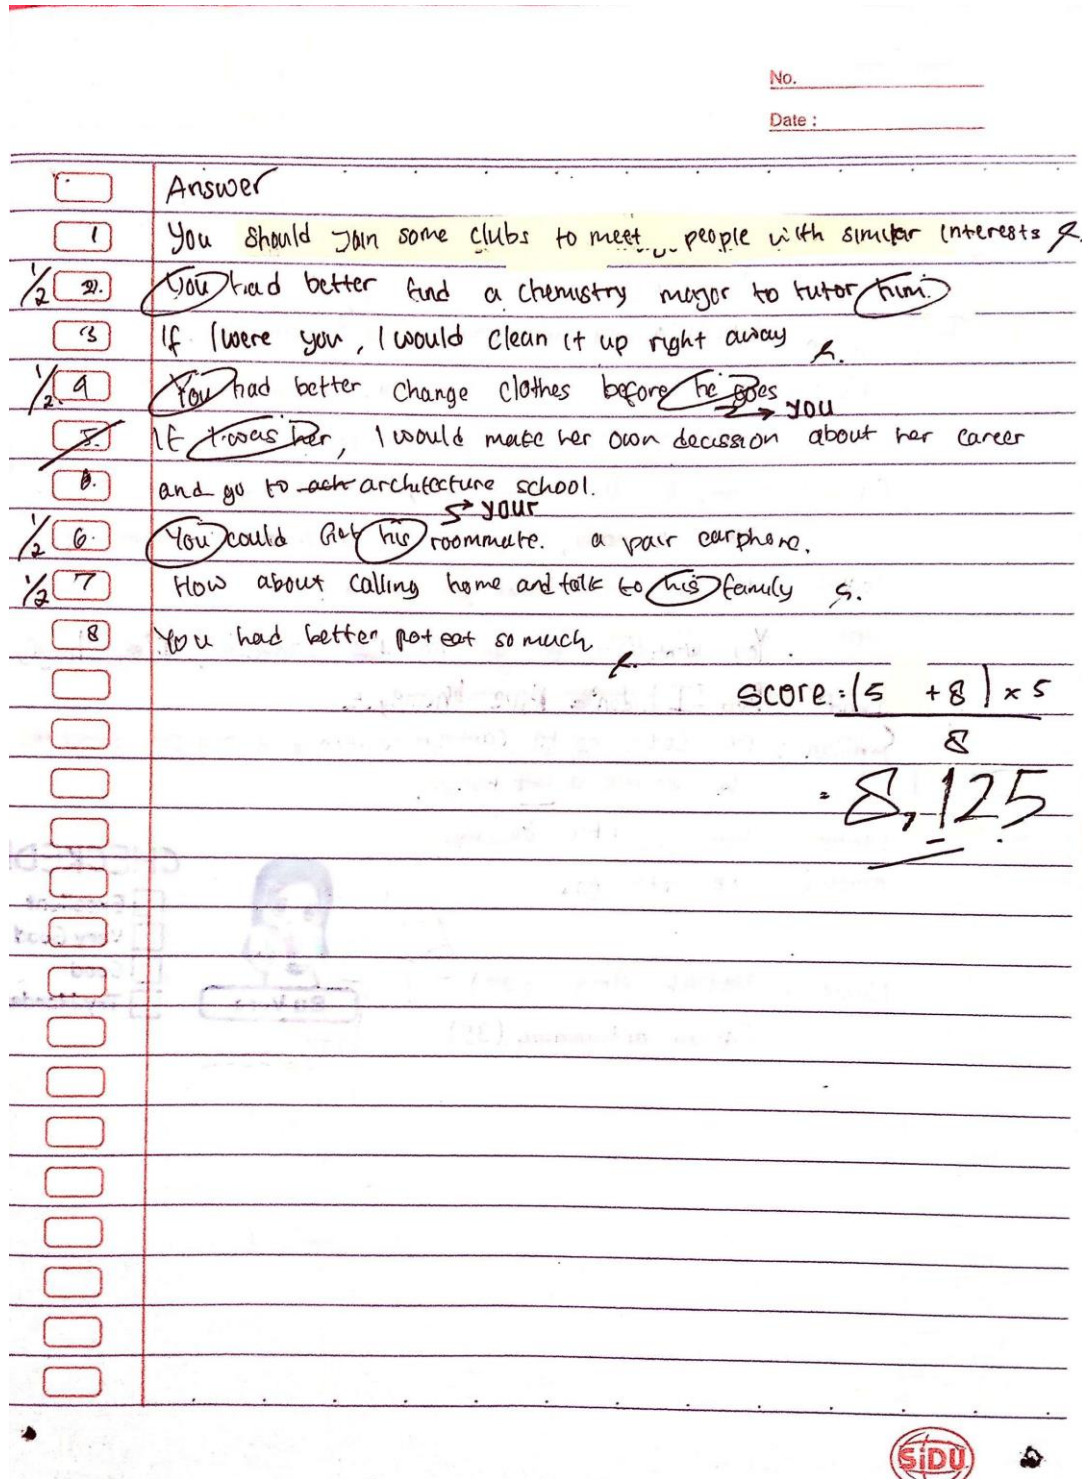 No.
Date :
Answer
1 You should Join some clubs to meet people with similar interests
1/2 2. You had better find a chemistry mayor to tutor him.
3 If I were you, I would clean it up right away
1/2 4 You had better change clothes before he goes
→ you
5. If I was her, I would make her own decission about her career
and go to architecture school.
→ your
1/2 6. You could his roommate. a pair earphone.
1/2 7 How about calling home and talk to his family
8 You had better not eat so much
score : (5 + 8) x 5
8
= 8,125
SiDU